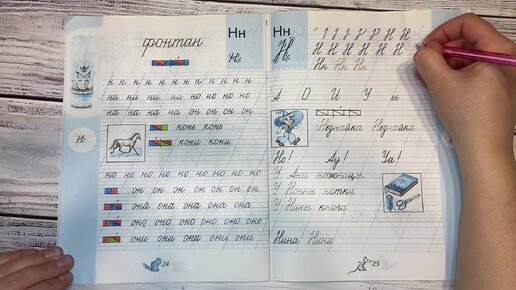 фонтан
Нн
Н н
н н н н н н н н н н н
ни ни ни ни но но но но
на на на на он он он он
конь конь
кони кони
но но но но но но но но но но
он он он он он он он
она она она она она
оно оно оно оно оно оно
они они они они они
24
Нн
Н
Н Н Н Н Н Н
Нн Нн Нн
А О И У ы
Незнайка Незнайка
Но! Ау! Уа!
У Ани ножницы.
У Нонны нитки.
У Нины книги.
Нина Нина
25